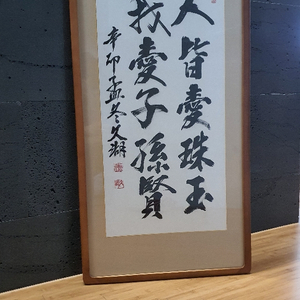 人皆愛珠玉
我愛子孫賢
辛卯孟冬